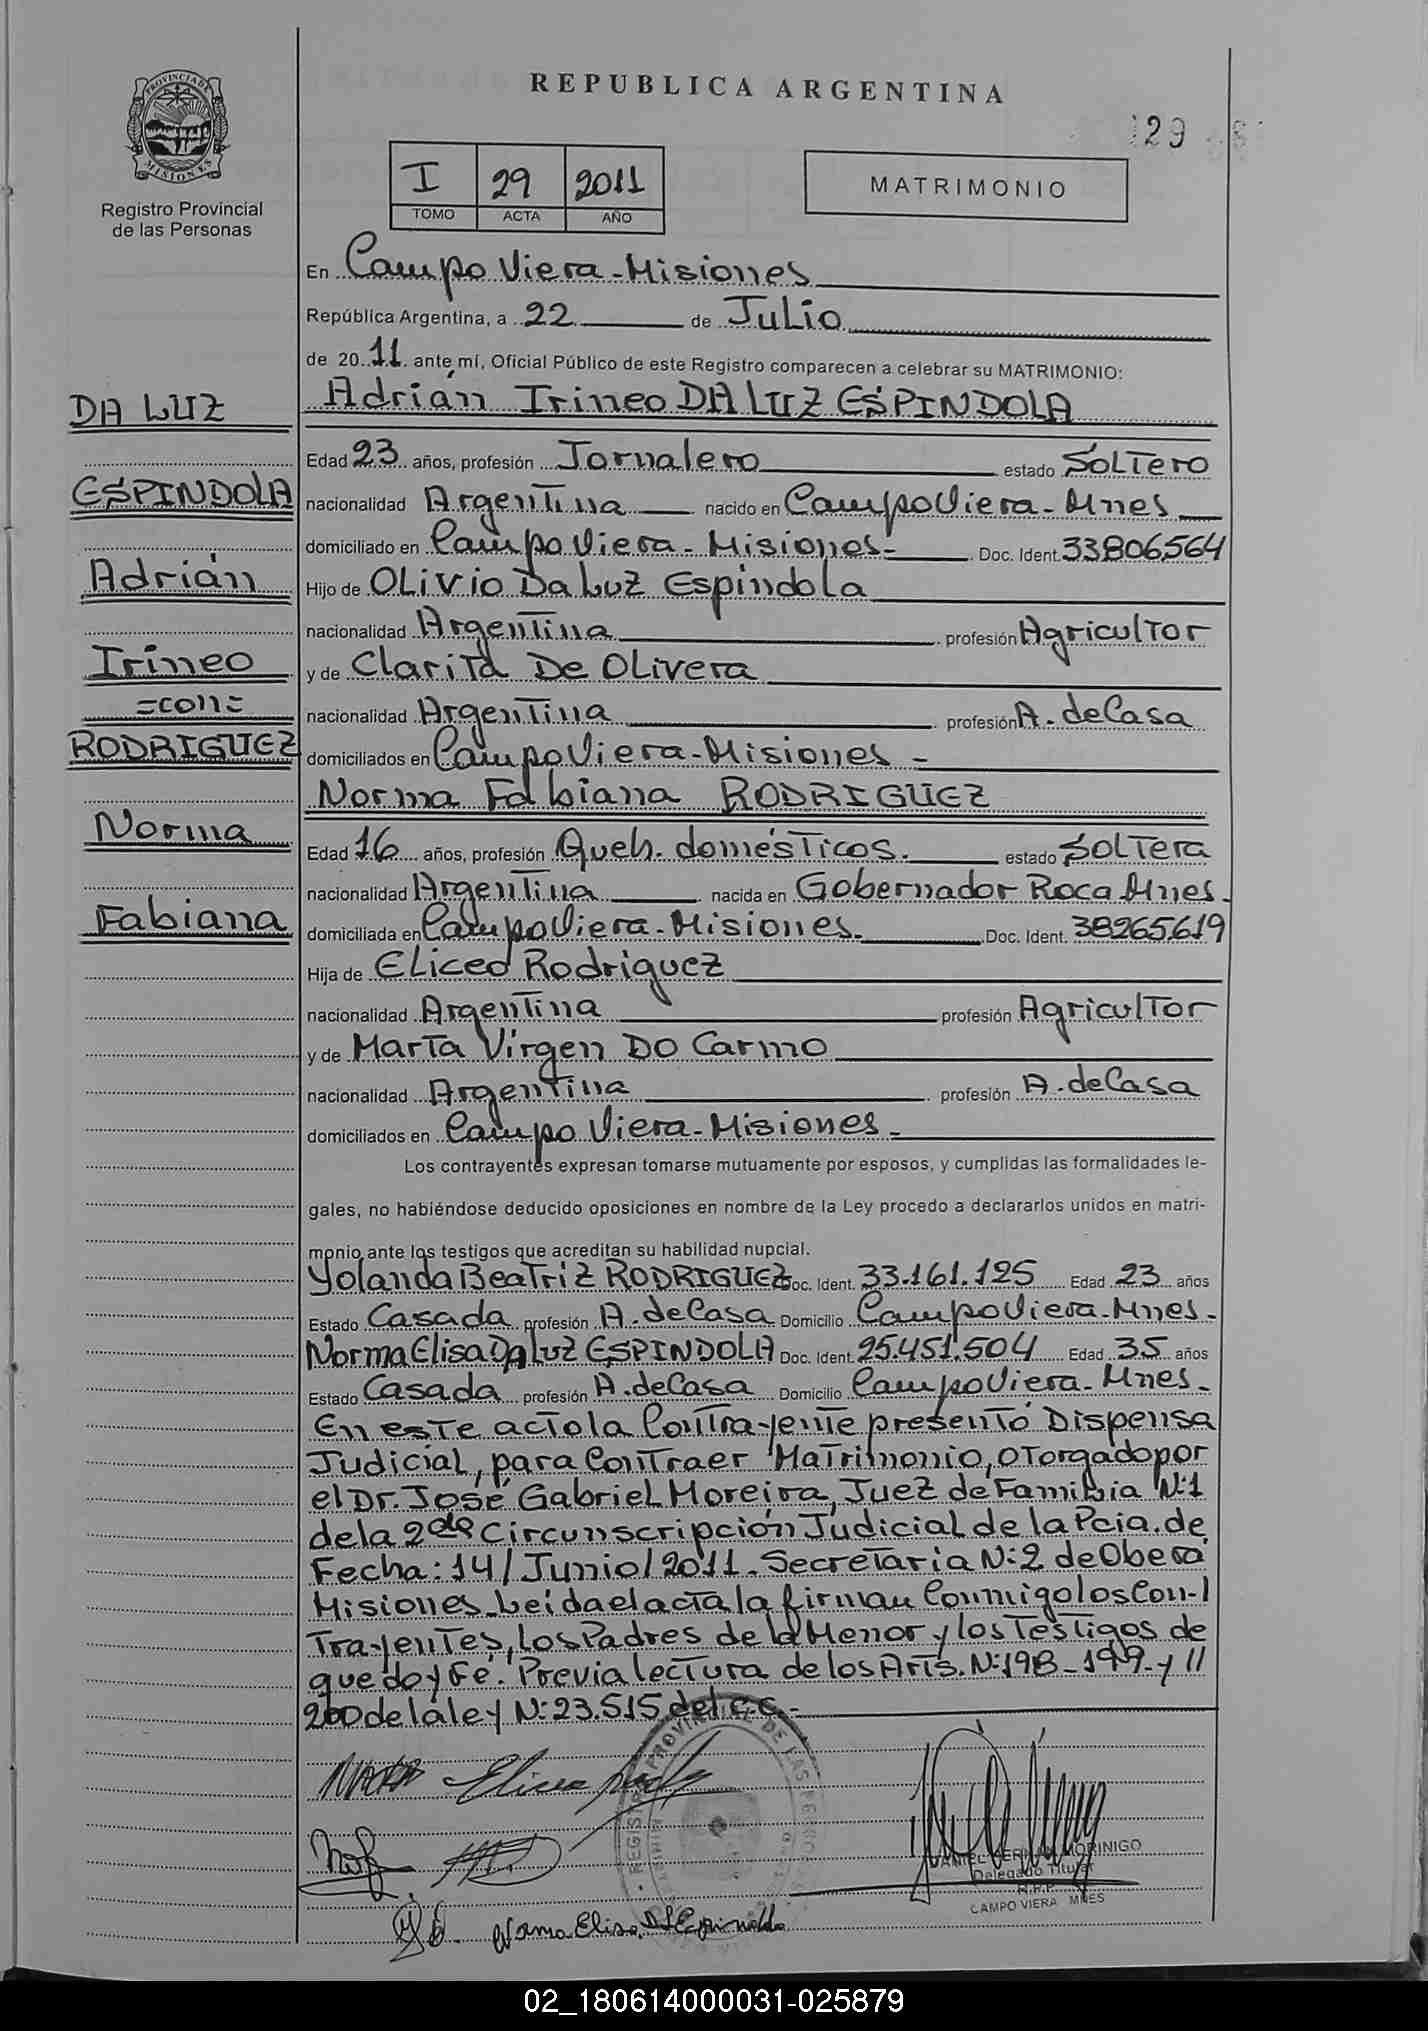 PROVINCIA DE
MISIONES
Registro Provincial
de las Personas
REPUBLICA ARGENTINA
29
I 29 2011
TOMO ACTA AÑO
MATRIMONIO
En Campo Viera - Misiones
República Argentina, a 22 de Julio
de 2011 ante mí, Oficial Público de este Registro comparecen a celebrar su MATRIMONIO:
DA LUZ
ESPINDOLA
Adrián
Irineo
=con=
RODRIGUEZ
Norma
Fabiana
Adrián Irineo DA LUZ ESPINDOLA
Edad 23 años, profesión Jornalero estado SOLTero
nacionalidad Argentina nacido en Campo Viera - Mnes
domiciliado en Campo Viera - Misiones- Doc. Ident. 33806564
Hijo de OLivio Da Luz Espíndola
nacionalidad Argentina profesión AgriculTor
y de Clarita De OLivera
nacionalidad Argentina profesión A. de Casa
domiciliados en Campo Viera - Misiones -
Norma Fabiana RODRIGUEZ
Edad 16 años, profesión Queh. domésticos. estado SOLTera
nacionalidad Argentina nacida en Gobernador Roca Mnes.
domiciliada en Campo Viera - Misiones. Doc. Ident. 38265619
Hija de Eliceo Rodriguez
nacionalidad Argentina profesión AgriculTor
y de Marta Virgen Do Carmo
nacionalidad Argentina profesión A. de Casa
domiciliados en Campo Viera - Misiones -
Los contrayentes expresan tomarse mutuamente por esposos, y cumplidas las formalidades le-
gales, no habiéndose deducido oposiciones en nombre de la Ley procedo a declararlos unidos en matri-
monio ante los testigos que acreditan su habilidad nupcial.
Yolanda Beatriz RODRIGUEZ Doc. Ident. 33.161.125 Edad 23 años
Estado Casada profesión A. de Casa Domicilio Campo Viera - Mnes -
Norma Elisa Da Luz ESPINDOLA Doc. Ident. 25.451.504 Edad 35 años
Estado Casada profesión A. de Casa Domicilio Campo Viera - Mnes -
En este acto la Contrayente presentó Dispensa
Judicial, para Contraer Matrimonio, otorgado por
el Dr. José Gabriel Moreira, Juez de Familia N:1
de la 2da Circunscripción Judicial de la Pcia. de
Fecha: 14/Junio/2011. Secretaria N:2 de Obera
Misiones - Leída el acta la firman Conmigo los Con-
Trayentes, los Padres de la Menor y los Testigos de
que doy Fé. Previa lectura de los Arts. N:198 - 199 - y //
200 de la ley N:23.515 del C.C.-
REGISTRO PROVINCIAL DE LAS PERSONAS
Norma Elisa D L Espindola
MORINIGO
Delegado Titular
R.P.P.
CAMPO VIERA MNES
02_180614000031-025879